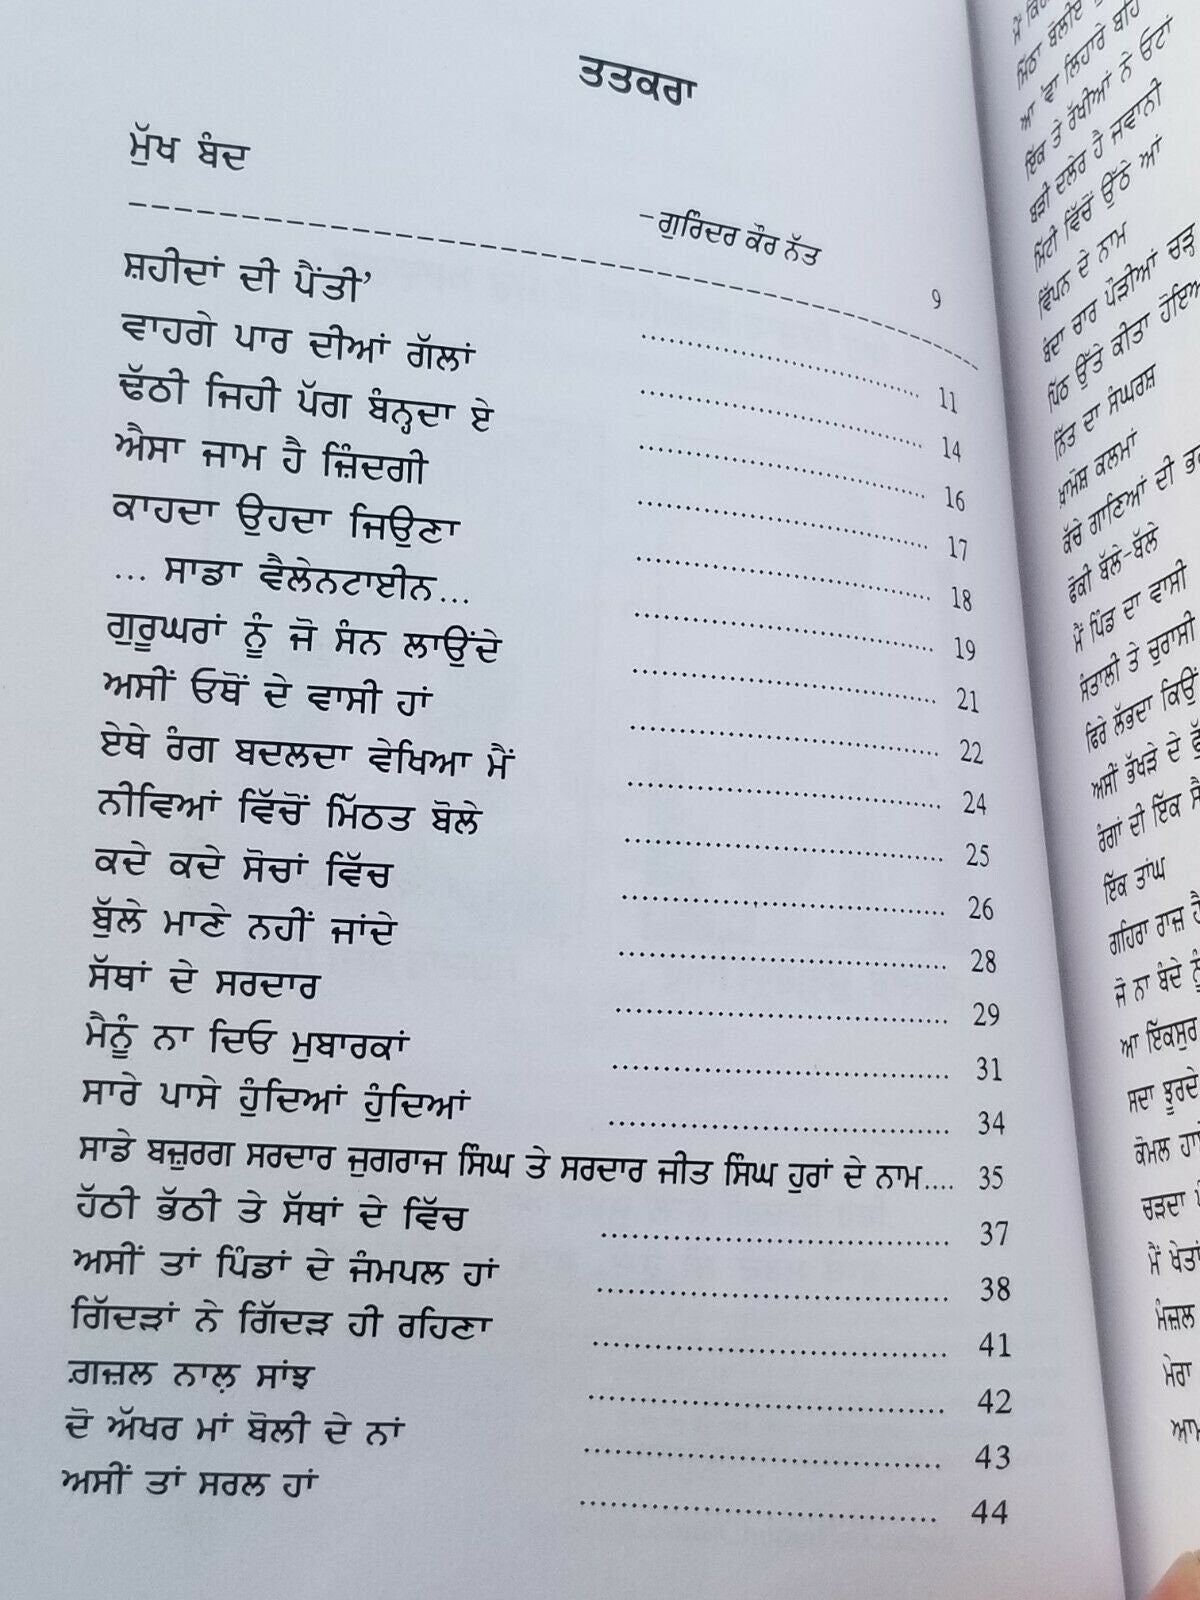 ਤਤਕਰਾ
ਮੁੱਖ ਬੰਦ
-ਗੁਰਿੰਦਰ ਕੌਰ ਨੱਤ 9
ਸ਼ਹੀਦਾਂ ਦੀ ਪੈਂਤੀ’ 11
ਵਾਹਗੇ ਪਾਰ ਦੀਆਂ ਗੱਲਾਂ 14
ਢੱਠੀ ਜਿਹੀ ਪੱਗ ਬੰਨ੍ਹਦਾ ਏ 16
ਐਸਾ ਜਾਮ ਹੈ ਜ਼ਿੰਦਗੀ 17
ਕਾਹਦਾ ਉਹਦਾ ਜਿਉਣਾ 18
... ਸਾਡਾ ਵੈਲੇਨਟਾਈਨ... 19
ਗੁਰੂਘਰਾਂ ਨੂੰ ਜੋ ਸੰਨ ਲਾਉਂਦੇ 21
ਅਸੀਂ ਓਥੋਂ ਦੇ ਵਾਸੀ ਹਾਂ 22
ਏਥੇ ਰੰਗ ਬਦਲਦਾ ਵੇਖਿਆ ਮੈਂ 24
ਨੀਵਿਆਂ ਵਿੱਚੋਂ ਮਿੱਠਤ ਬੋਲੇ 25
ਕਦੇ ਕਦੇ ਸੋਚਾਂ ਵਿੱਚ 26
ਬੁੱਲੇ ਮਾਣੇ ਨਹੀਂ ਜਾਂਦੇ 28
ਸੱਥਾਂ ਦੇ ਸਰਦਾਰ 29
ਮੈਨੂੰ ਨਾ ਦਿਓ ਮੁਬਾਰਕਾਂ 31
ਸਾਰੇ ਪਾਸੇ ਹੁੰਦਿਆਂ ਹੁੰਦਿਆਂ 34
ਸਾਡੇ ਬਜ਼ੁਰਗ ਸਰਦਾਰ ਜੁਗਰਾਜ ਸਿੰਘ ਤੇ ਸਰਦਾਰ ਜੀਤ ਸਿੰਘ ਹੁਰਾਂ ਦੇ ਨਾਮ.... 35
ਹੱਠੀ ਭੱਠੀ ਤੇ ਸੱਥਾਂ ਦੇ ਵਿੱਚ 37
ਅਸੀਂ ਤਾਂ ਪਿੰਡਾਂ ਦੇ ਜੰਮਪਲ ਹਾਂ 38
ਗਿੱਦੜਾਂ ਨੇ ਗਿੱਦੜ ਹੀ ਰਹਿਣਾ 41
ਗ਼ਜ਼ਲ ਨਾਲ਼ ਸਾਂਝ 42
ਦੋ ਅੱਖਰ ਮਾਂ ਬੋਲੀ ਦੇ ਨਾਂ 43
ਅਸੀਂ ਤਾਂ ਸਰਲ ਹਾਂ 44
ਮਿੱਠਾ ਬੋਲੀਏ
ਆ 'ਵਾ ਲਿਹਾਰੇ
ਇੱਕ ਤੇ ਰੱਖੀਆਂ ਨੇ ਓਟਾਂ
ਬੜੀ ਦਲੇਰ ਹੈ ਜਵਾਨੀ
ਮਿੱਟੀ ਵਿੱਚੋਂ ਉੱਠੇ ਆਂ
ਵਿੱਪਨ ਦੇ ਨਾਮ
ਬੰਦਾ ਚਾਰ ਪੌੜੀਆਂ ਚੜ੍ਹ
ਪਿੱਠ ਉੱਤੇ ਕੀਤਾ
ਨਿੱਤ ਦਾ ਸੰਘਰਸ਼
ਖ਼ਾਮੋਸ਼ ਕਲਮਾਂ
ਕੱਚੇ ਗਾਣਿਆਂ ਦੀ
ਫੋਕੀ ਬੱਲੇ-ਬੱਲੇ
ਮੈਂ ਪਿੰਡ ਦਾ ਵਾਸੀ
ਸੰਤਾਲੀ ਤੇ ਚੁਰਾਸੀ
ਫਿਰੇ ਲੱਭਦਾ ਕਿਉਂ
ਅਸੀਂ ਭੱਖੜੇ ਦੇ
ਰੰਗਾਂ ਦੀ ਇੱਕ
ਇੱਕ ਤਾਂਘ
ਗਹਿਰਾ ਰਾਜ਼
ਜੋ ਨਾ ਬੰਦੇ ਨੂੰ
ਆ ਇੱਕਸੁਰ
ਸਦਾ ਝੂਰਦੇ
ਕੋਮਲ
ਚੜਦਾ
ਮੈਂ ਖੇਤਾਂ
ਮੰਜ਼ਲ
ਮੇਰਾ